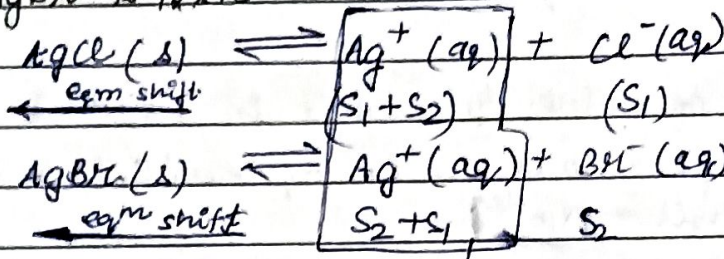 AgCl (s) ⇌ Ag⁺ (aq) + Cl⁻ (aq)
eqm shift (S₁ + S₂) (S₁)
AgBr (s) ⇌ Ag⁺ (aq) + Br⁻ (aq)
eqᵐ shift S₂ + S₁ S₂